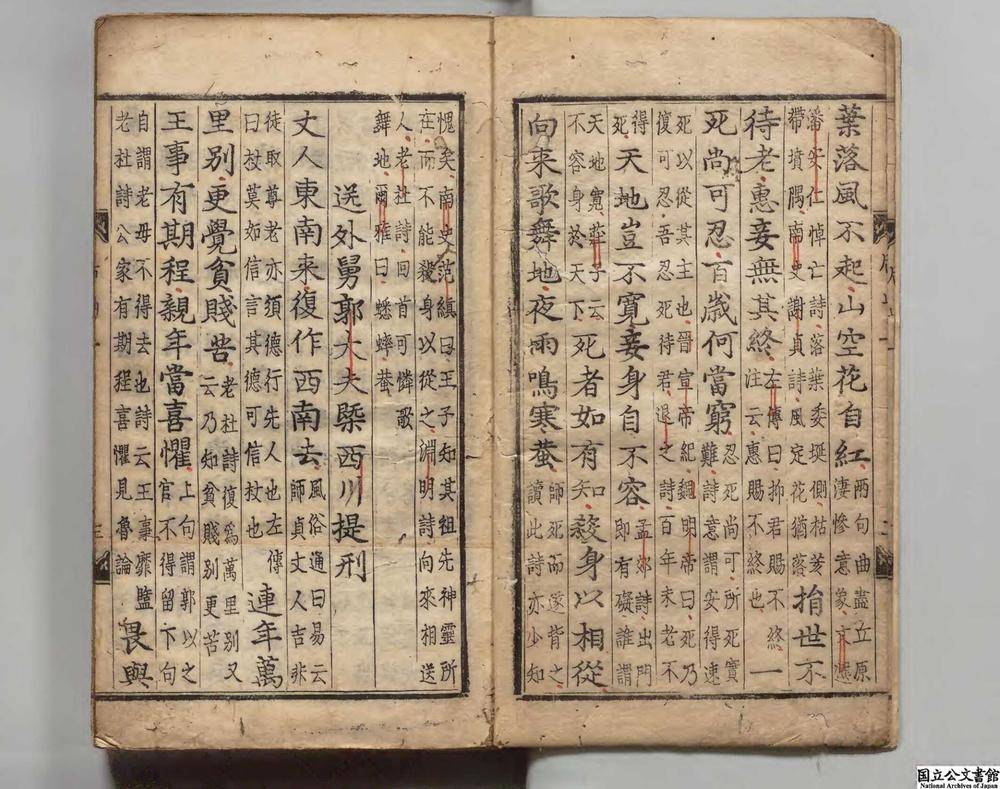 葉落風不起山空花自紅
兩句曲盡丘原
淒慘意象文選
潘安仁悼亡詩落葉委埏側枯荄
帶墳隅南史謝貞詩風定花猶落
捐世不
待老惠妾無其終
左傳曰抑君賜不終
注云惠賜不終也
一
死尚可忍百歲何當窮
忍死尚可所死實
難詩意謂安得速
死以從其主也晉宣帝紀魏明帝曰死乃
復可忍吾忍死待君退之詩百年未老不
得
死
天地豈不寬妾身自不容
孟郊詩出門
即有礙誰謂
天地寬莊子云
不容身於天下
死者如有知殺身以相從
向來歌舞地夜雨鳴寒蛩
師死而遂背之
讀此詩亦少知
愧矣南史范縝曰王子知其祖先神靈所
在而不能殺身以從之淵明詩向來相送
人老杜詩回首可憐歌
舞地爾雅曰蟋蟀蛬
送外舅郭大夫槩西川提刑
丈人東南來復作西南去
風俗通曰易云
師貞丈人吉非
徒取尊老亦須德行先人也左傳
曰杖莫如信言其德可信杖也
連年萬
里別更覺貧賤苦
老杜詩復為萬里別又
云乃知貧賤別更苦
王事有期程親年當喜懼
上句謂郭以之
官不得留下句
自謂老母不得去也詩云王事靡盬
老杜詩公家有期程喜懼見魯論
畏與
三
国立公文書館
National Archives of Japan